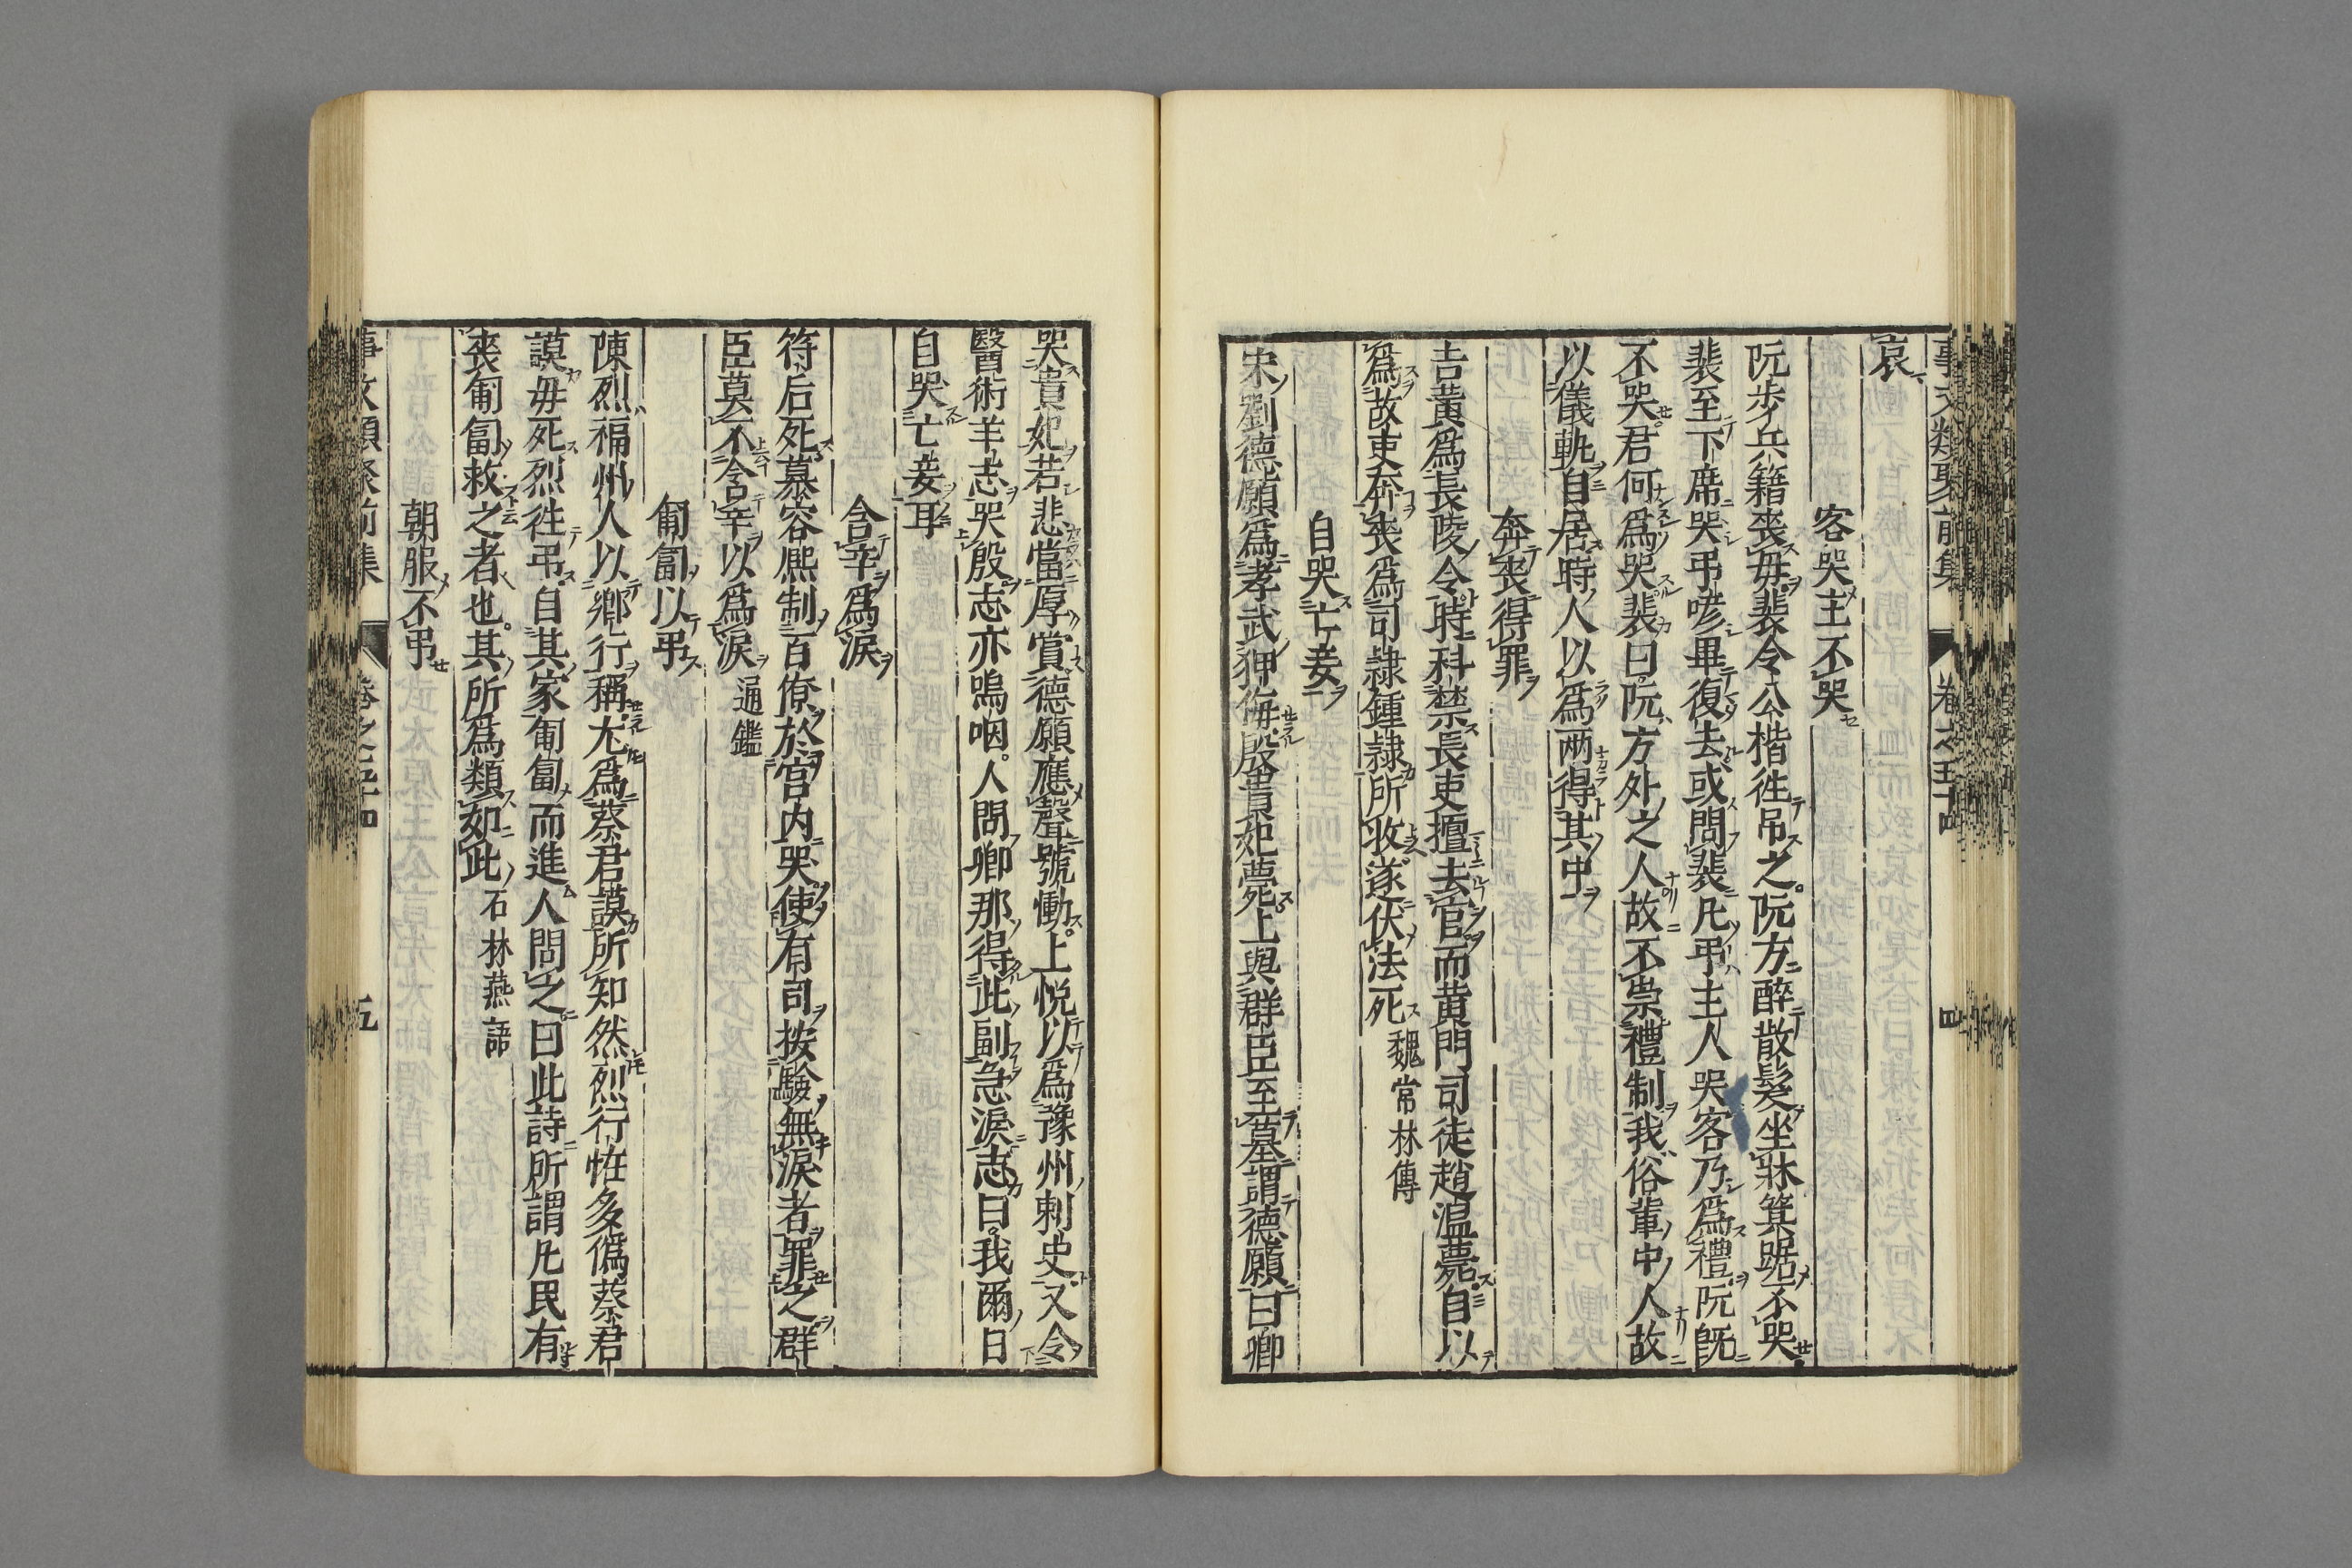 事文類聚前集 卷之五十四
哀
客哭主不哭
阮歩兵籍喪母裴令公楷徃吊之阮方醉散髮坐牀箕踞不哭
裴至下席哭弔喭畢復去或問裴凡弔主人哭客乃爲禮阮旣
不哭君何爲哭裴曰阮方外之人故不崇禮制我俗輩中人故
以儀軌自居時人以爲两得其中
奔喪得罪
吉黃爲長陵令時科禁長吏擅去官而黄門司徒趙温薨自以
爲故吏奔喪爲司隷鍾隷所收遂伏法死 魏常林傳
自哭亡妾
宋劉德願爲孝武狎侮殷貴妃薨上與群臣至墓謂德願曰卿
哭貴妃若悲當厚賞德願應聲號慟上悦以爲豫州刺史又令
醫術羊志哭殷志亦嗚咽人問卿那得此副急淚志曰我爾日
自哭亡妾耳
含辛爲淚
符后死慕容熈制百僚於宮内哭使有司按驗無淚者罪之群
臣莫不含辛以爲淚 通鑑
匍匐以弔
陳烈福州人以鄕行稱尤爲蔡君謨所知然烈行恠多僞蔡君
謨母死烈徃弔自其家匍匐而進人問之曰此詩所謂凡民有
喪匍匐救之者也其所爲類如此 石林燕語
朝服不弔
事文類聚前集 卷之五十四 五